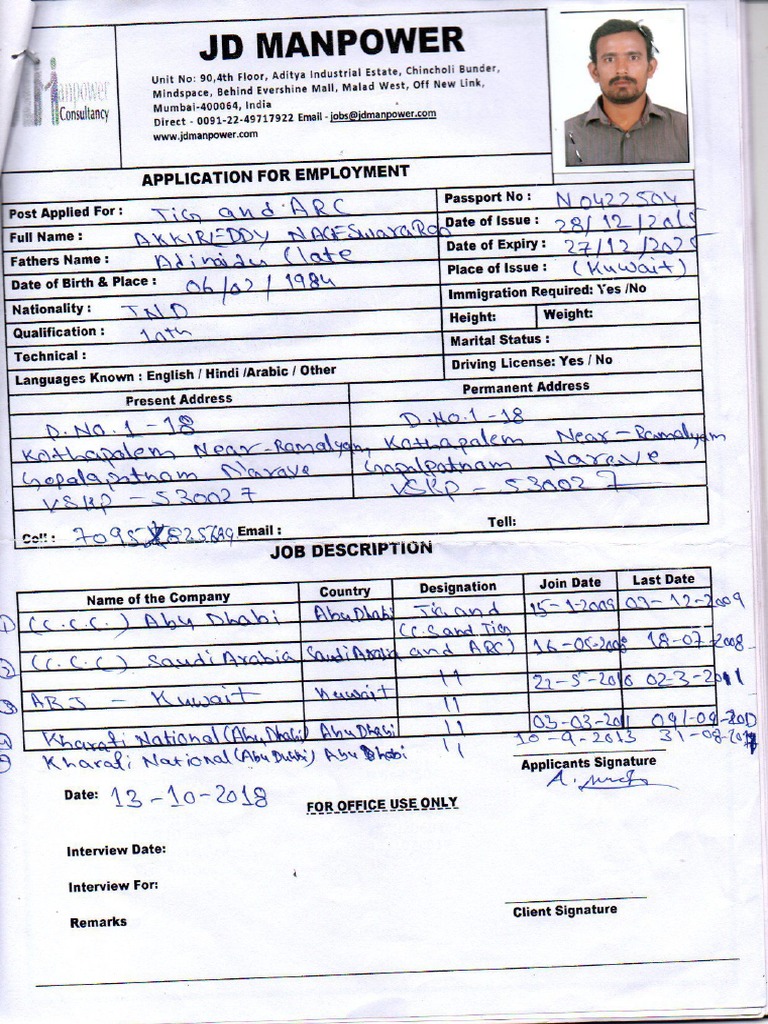 JD MANPOWER
Manpower
Consultancy
Unit No: 90,4th Floor, Aditya Industrial Estate, Chincholi Bunder,
Mindspace, Behind Evershine Mall, Malad West, Off New Link,
Mumbai-400064, India
Direct - 0091-22-49717922 Email - jobs@jdmanpower.com
www.jdmanpower.com
APPLICATION FOR EMPLOYMENT
Post Applied For : Tig and ARC
Passport No : N0422504
Full Name : AKKIREDDY NAGESwaraRao
Date of Issue : 28/12/2015
Fathers Name : Adinaidu (late
Date of Expiry : 27/12/2025
Date of Birth & Place : 06/02/1984
Place of Issue : (Kuwait)
Nationality : IND
Immigration Required: Yes /No
Qualification : 10th
Height: Weight:
Technical :
Marital Status :
Languages Known : English / Hindi /Arabic / Other
Driving License: Yes / No
Present Address
Permanent Address
D.No.1-18
D.No.1-18
Kothapalem Near-Ramalyam,
Kothapalem Near-Ramalyam
Gopalapatnam Narave
Goopalpatnam Narave
VSKP - 530027
VSKP - 530027
Cell : 7095 825689 Email : Tell:
JOB DESCRIPTION
Name of the Company Country Designation Join Date Last Date
1 (C.C.C.) Abu Dhabi AbuDhabi Tig and 15-1-2009 09-12-2009
(C.S and Tig
2 (C.C.C) Saudi Arabia Saudi Arabia and ARC) 16-05-2008 18-07-2008
3 ABJ - Kuwait Kuwait 11 22-5-2010 02-3-2011
4 Kharafi National (Abu Dhabi) Abu Dhabi 11 03-03-2011
5 Kharafi National (Abu Dhabi) Abu Dhabi 11 10-9-2013
Applicants Signature
Date: 13-10-2018
FOR OFFICE USE ONLY
Interview Date:
Interview For:
Remarks
Client Signature